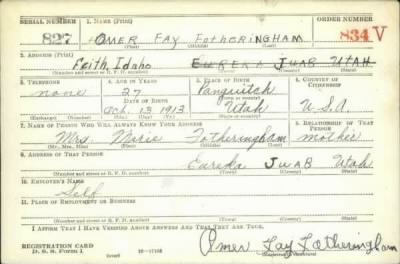 SERIAL NUMBER 1. NAME (Print) ORDER NUMBER
827 OMER FAY FOTHERINGHAM 834 V
(First) (Middle) (Last)
2. ADDRESS (Print)
Feith, Idaho EUREKA JUAB UTAH
(Number and street or R. F. D. number) (Town) (County) (State)
3. TELEPHONE 4. AGE IN YEARS 5. PLACE OF BIRTH 6. COUNTRY OF CITIZENSHIP
none 27 Panguitch
DATE OF BIRTH (Town or county)
Oct. 13 1913 Utah U.S.A.
(Exchange) (Number) (Mo.) (Day) (Yr.) (State or country)
7. NAME OF PERSON WHO WILL ALWAYS KNOW YOUR ADDRESS 8. RELATIONSHIP OF THAT PERSON
Mrs. Marie Fotheringham mother
(Mr., Mrs., Miss) (First) (Middle) (Last)
9. ADDRESS OF THAT PERSON
Eureka JUAB Utah
(Number and street or R. F. D. number) (Town) (County) (State)
10. EMPLOYER'S NAME
Self
11. PLACE OF EMPLOYMENT OR BUSINESS
(Number and street or R. F. D. number) (Town) (County) (State)
I AFFIRM THAT I HAVE VERIFIED ABOVE ANSWERS AND THAT THEY ARE TRUE.
REGISTRATION CARD
D. S. S. Form 1 (over) Omer Fay Fotheringham
(Registrant's signature)